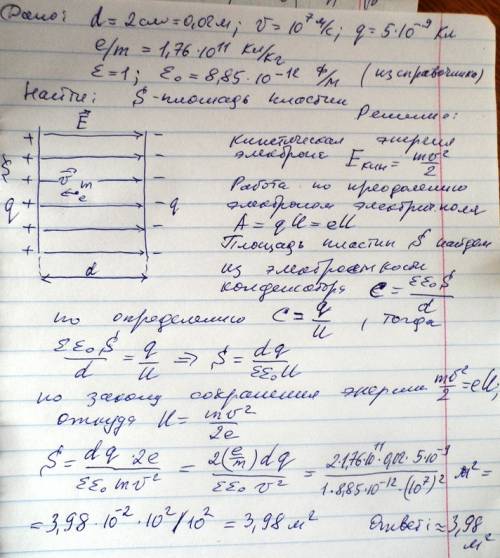 Дано: d = 2 см = 0,02 м; v = 10⁷ м/с; q = 5·10⁻⁹ Кл
e/m = 1,76·10¹¹ Кл/кг
ε = 1; ε₀ = 8,85·10⁻¹² Ф/м (из справочника)
Найти: S - площадь пластин
Решение:
E
+ -
+ -
S + v m - 
e
q + - q
+ -
+ -
d
Кинетическая энергия
электрона Eкин = mv²/2
Работа по преодолению
электроном электрич. поля
A = qU = eU
Площадь пластин S найдем
из электроемкости
конденсатора C = εε₀S/d
по определению C = q/U, тогда
εε₀S/d = q/U ⇒ S = dq/εε₀U
по закону сохранения энергии mv²/2 = eU,
откуда U = mv²/2e
S = dq·2e/εε₀mv² = 2(e/m)dq/εε₀v² = 2·1,76·10¹¹·0,02·5·10⁻⁹/1·8,85·10⁻¹²·(10⁷)² м² =
= 3,98·10⁻²·10²/10² = 3,98 м² Ответ: ≈ 3,98 м²